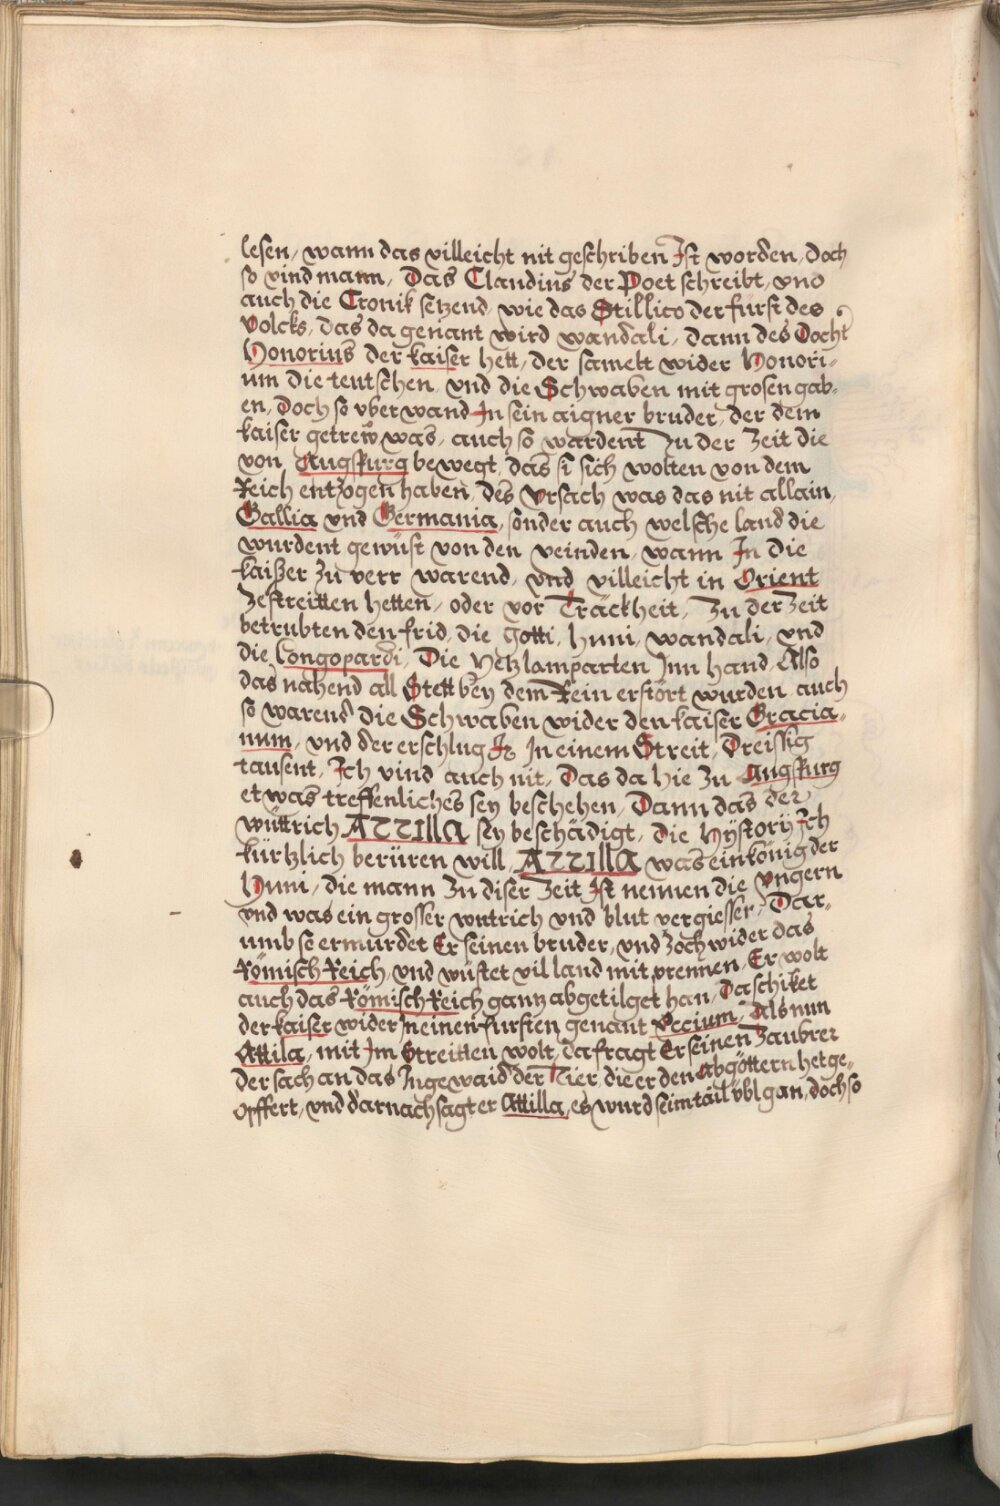 lesen, wann das villeicht nit geschriben Ist worden, doch
so vind mann, Das Claudius der Poet schreibt, vnd
auch die Cronik setzend, wie das Stillico der fürst des
Volcks, das da genant wird wandali, dann des Docht
Honorius der kaiser hett, der samelt wider Honori-
um die teutschen, vnd die Schwaben mit grosen gab-
en, doch so vberwand In sein aigner bruder, der dem
kaiser getrew was, auch so wardent Zu der Zeit die
von Augspurg bewegt, das si sich wolten von dem
Reich entzogen haben, des Vrsach was das nit allain,
Gallia vnd Germania, sonder auch welsche land die
wurdent gewüst von den veinden, wann In die
kaißer zu verr warend, vnd villeicht in Orient
zestreitten hetten, oder vor Träckheit, Zu der Zeit
betrubten den frid, die gotti, huni, wandali, vnd
die Longopardi, Die yetz lamparten Inn hand, Also
das nahend all Stett bey dem Rein erstört wurden auch
so warend die Schwaben wider den kaiser Gracia-
num, vnd der erschlug Ir In einem Streit, Dreissig
tausent, Ich vind auch nit, Das da hie zu Augspurg
etwas treffenliches sey beschehen, Dann das der
wüttrich ATTIlla sey beschädigt, die Hystory Ich
kürtzlich berüren will, ATTIlla was ein könig der
Huni, die mann Zu diser Zeit Ist nennen die Vngern
vnd was ein grosser wutrich vnd blut vergiesser, Dar-
umb so ermürdet Er seinen bruder, vnd zoch wider das
Römisch Reich, vnd wüstet vil land mit prennen, Er wolt
auch das Römisch Reich gantz abgetilget han, Da schiket
der kaiser wider In einen fursten genant Eecium, Als nun
Attila, mit Im Streitten wolt, da fragt Er seinen Zaubrer
der sach an das Ingewaid der Tier, die er den Abgöttern het ge-
opffert, vnd darnach sagt er Attilla, es wurd seim tail übl gan, doch so